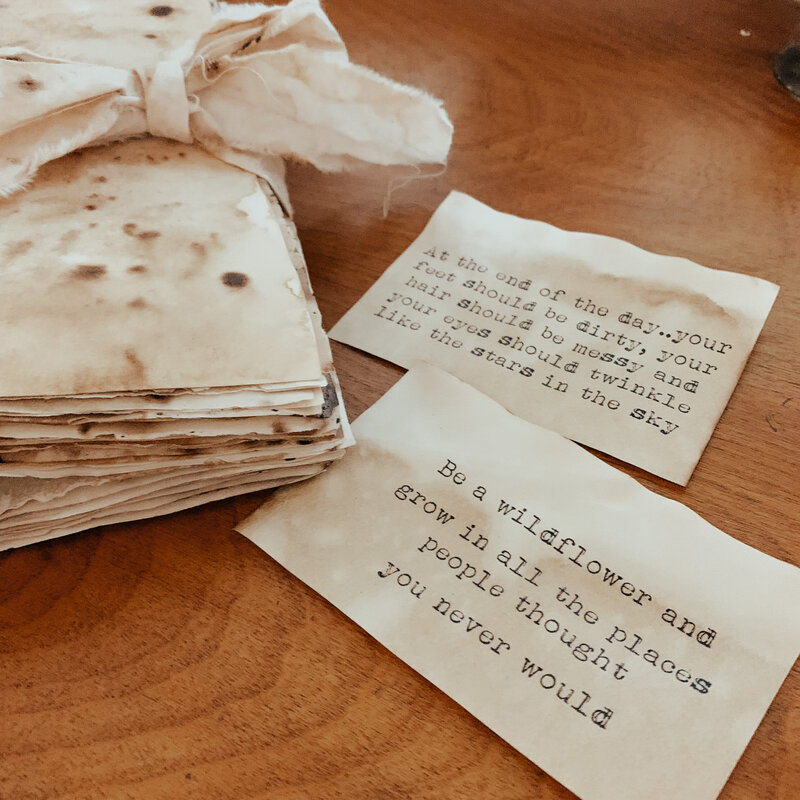 At the end of the day..your
feet should be dirty, your
hair should be messy and
your eyes should twinkle
like the stars in the sky
Be a wildflower and
grow in all the places
people thought
you never would